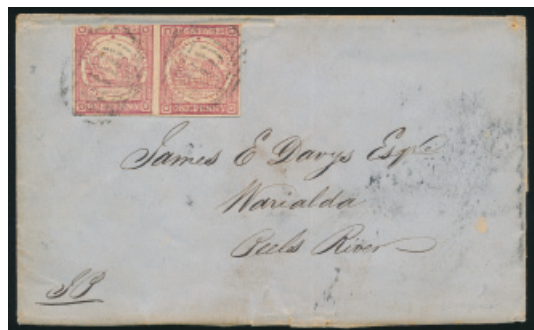 POSTAGE
ONE PENNY ONE PENNY
James E Davys Esqre
Warialda
Peels River